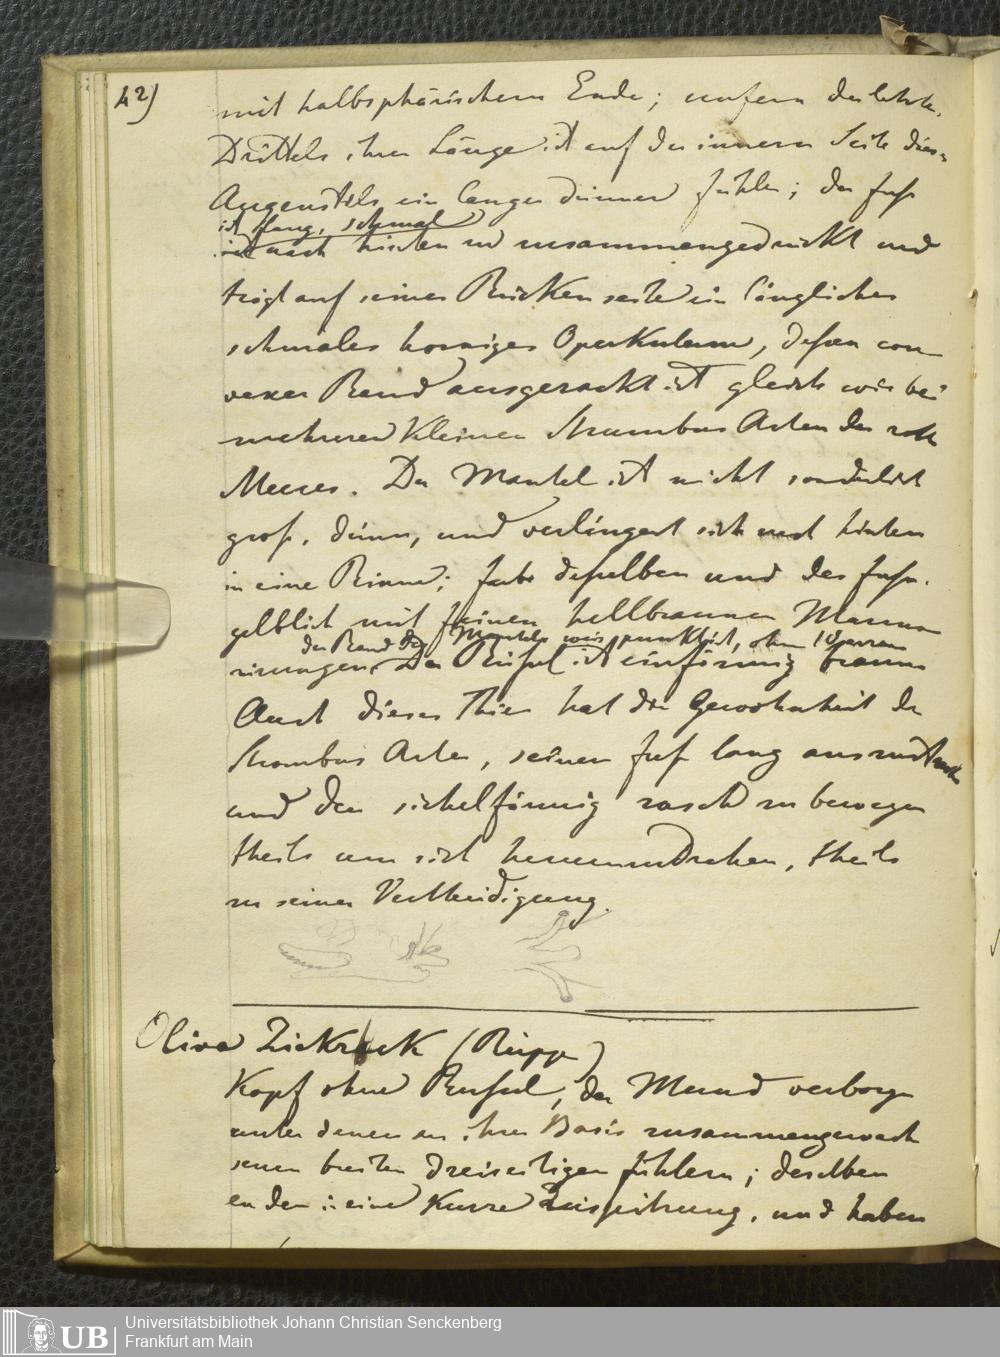 42)
mit halbsphärischem Ende; unfern des letzten
Drittels ihrer Länge ist auf der innern Seite dieser
Augenstiels ein langer dünner Fühler; der Fuß
ist lang, schmal
nach hinten zusammengedrückt und
trägt auf seiner Rückenseite ein längliches
schmales horniges Operkulum, deßen con-
vexer Rand ausgezackt ist gleich wie bei
mehreren kleinen Strombus Arten des roth
Meeres. Der Mantel ist nicht sonderlich
groß, dünn, und verlängert sich nach hinten
in eine Rinne; Farbe deßelben und des Fußes
gelblich mit feinen hellbraunen Marmo-
der Rand des Mantels weis punktirt, ohne
rirungen. Der Rüßel ist einförmig braun
Auch dieses Thier hat die Gewohnheit der
Strombus Arten, seinen Fuß lang auszustrecken
und den sichelförmig rasch zu bewegen
theils um sich herumzudrehen, theils
zu seiner Vertheidigung.
Oliva Zickzack (Rüpp)
Kopf ohne Rüßel; der Mund verborgen
unter denen an ihrer Basis zusammengewach
senen breiten dreiseitigen Fühlern; dieselben
enden in eine kurze Zuspitzung, und haben
UB
Universitätsbibliothek Johann Christian Senckenberg
Frankfurt am Main